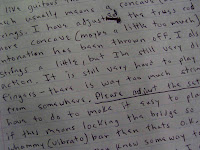 live guitars
usually means a concave
rings. I have adjust the truss rod
more concave (maybe a little too much
intonation has been thrown off. I al
strings a little, but I'm still very d
action. It is still very hard to play
fingers - there is way too much
from somewhere. Please adjust the
have to do to make it easy to pla
if this means locking the bridge
whammy (vibrato) bar then thats O.K.
know someway to